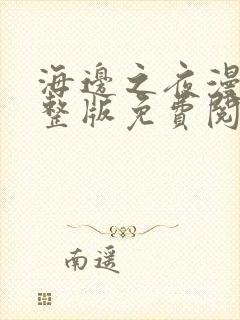 海邊之夜漫
整版免費閱
南遥